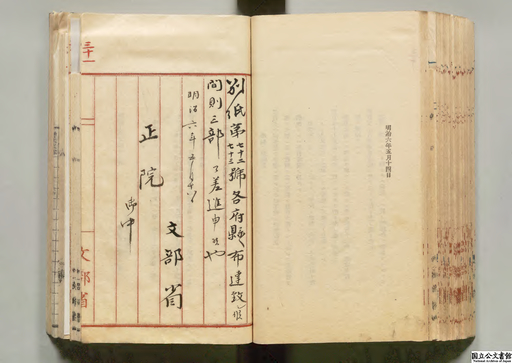 明治六年五月十四日
別紙第七十二七十三號各府縣ヘ布達致候
間則三部 差進申候也
明治六年五月十
文部省
正院
御中
三十一
文部省
国立公文書館
National Archives of Japan